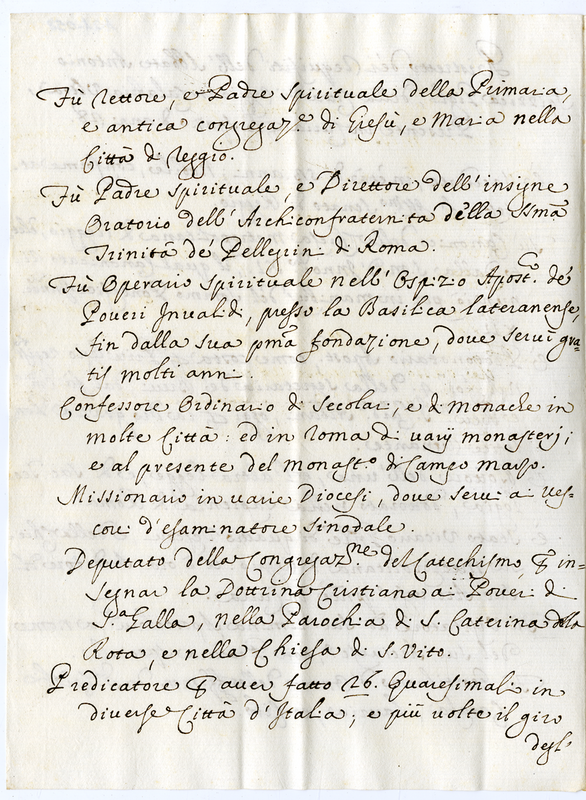 Fù Rettore, e Padre Spirituale della Primaria,
e antica congregaz.e di Giesù, e Maria nella
Città di Reggio.
Fù Padre Spirituale, e Direttore dell'insigne
Oratorio dell'Archiconfraternita della SSma
Trinità de' Pellegrini di Roma.
Fù Operario Spirituale nell'Ospizio Apost.co de'
Poveri Invalidi, presso la Basilica lateranense,
fin dalla sua pma fondazione, dove servì gra-
tis molti anni.
Confessore Ordinario di Secolari, e di Monache in
molte Città: ed in Roma di varij monasterj;
e al presente del monast.o di Campo marzo.
Missionario in varie Diocesi, dove servì a' Ves-
covi d'esaminatore Sinodale.
Deputato della Congregaz.ne del Catechismo, ꝑ in-
segnar la Dottrina Cristiana a' Poveri di
S.a Galla, nella Parochia di S. Caterina della
Rota, e nella Chiesa di S. Vito.
Predicatore ꝑ aver fatto 26. Quaresimali in
diverse Città d'Italia; e più volte il giro
degl'